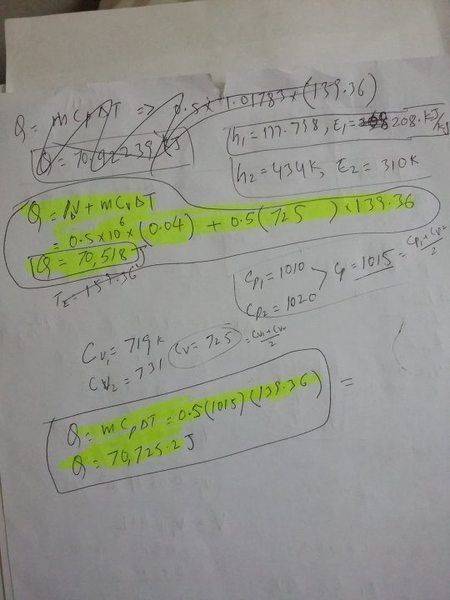 Q = mCpΔT => 0.5 x 1.01783 x (139.36)
Q = 70.92239 kJ
h1 = 177.738, E1 = 208. kJ/kg
h2 = 434k, E2 = 310k
Q = W + mCvΔT
= 0.5x10^6 x (0.04) + 0.5(725) x 139.36
Q = 70,518 J
Cp1 = 1010
Cp2 = 1020 > Cp = 1015 = Cp1+Cp2/2
Cv1 = 719k
Cv2 = 731 Cv = 725 = Cv1+Cv2/2
Q = mCpΔT = 0.5(1015)(139.36) =
Q = 70,725.2 J